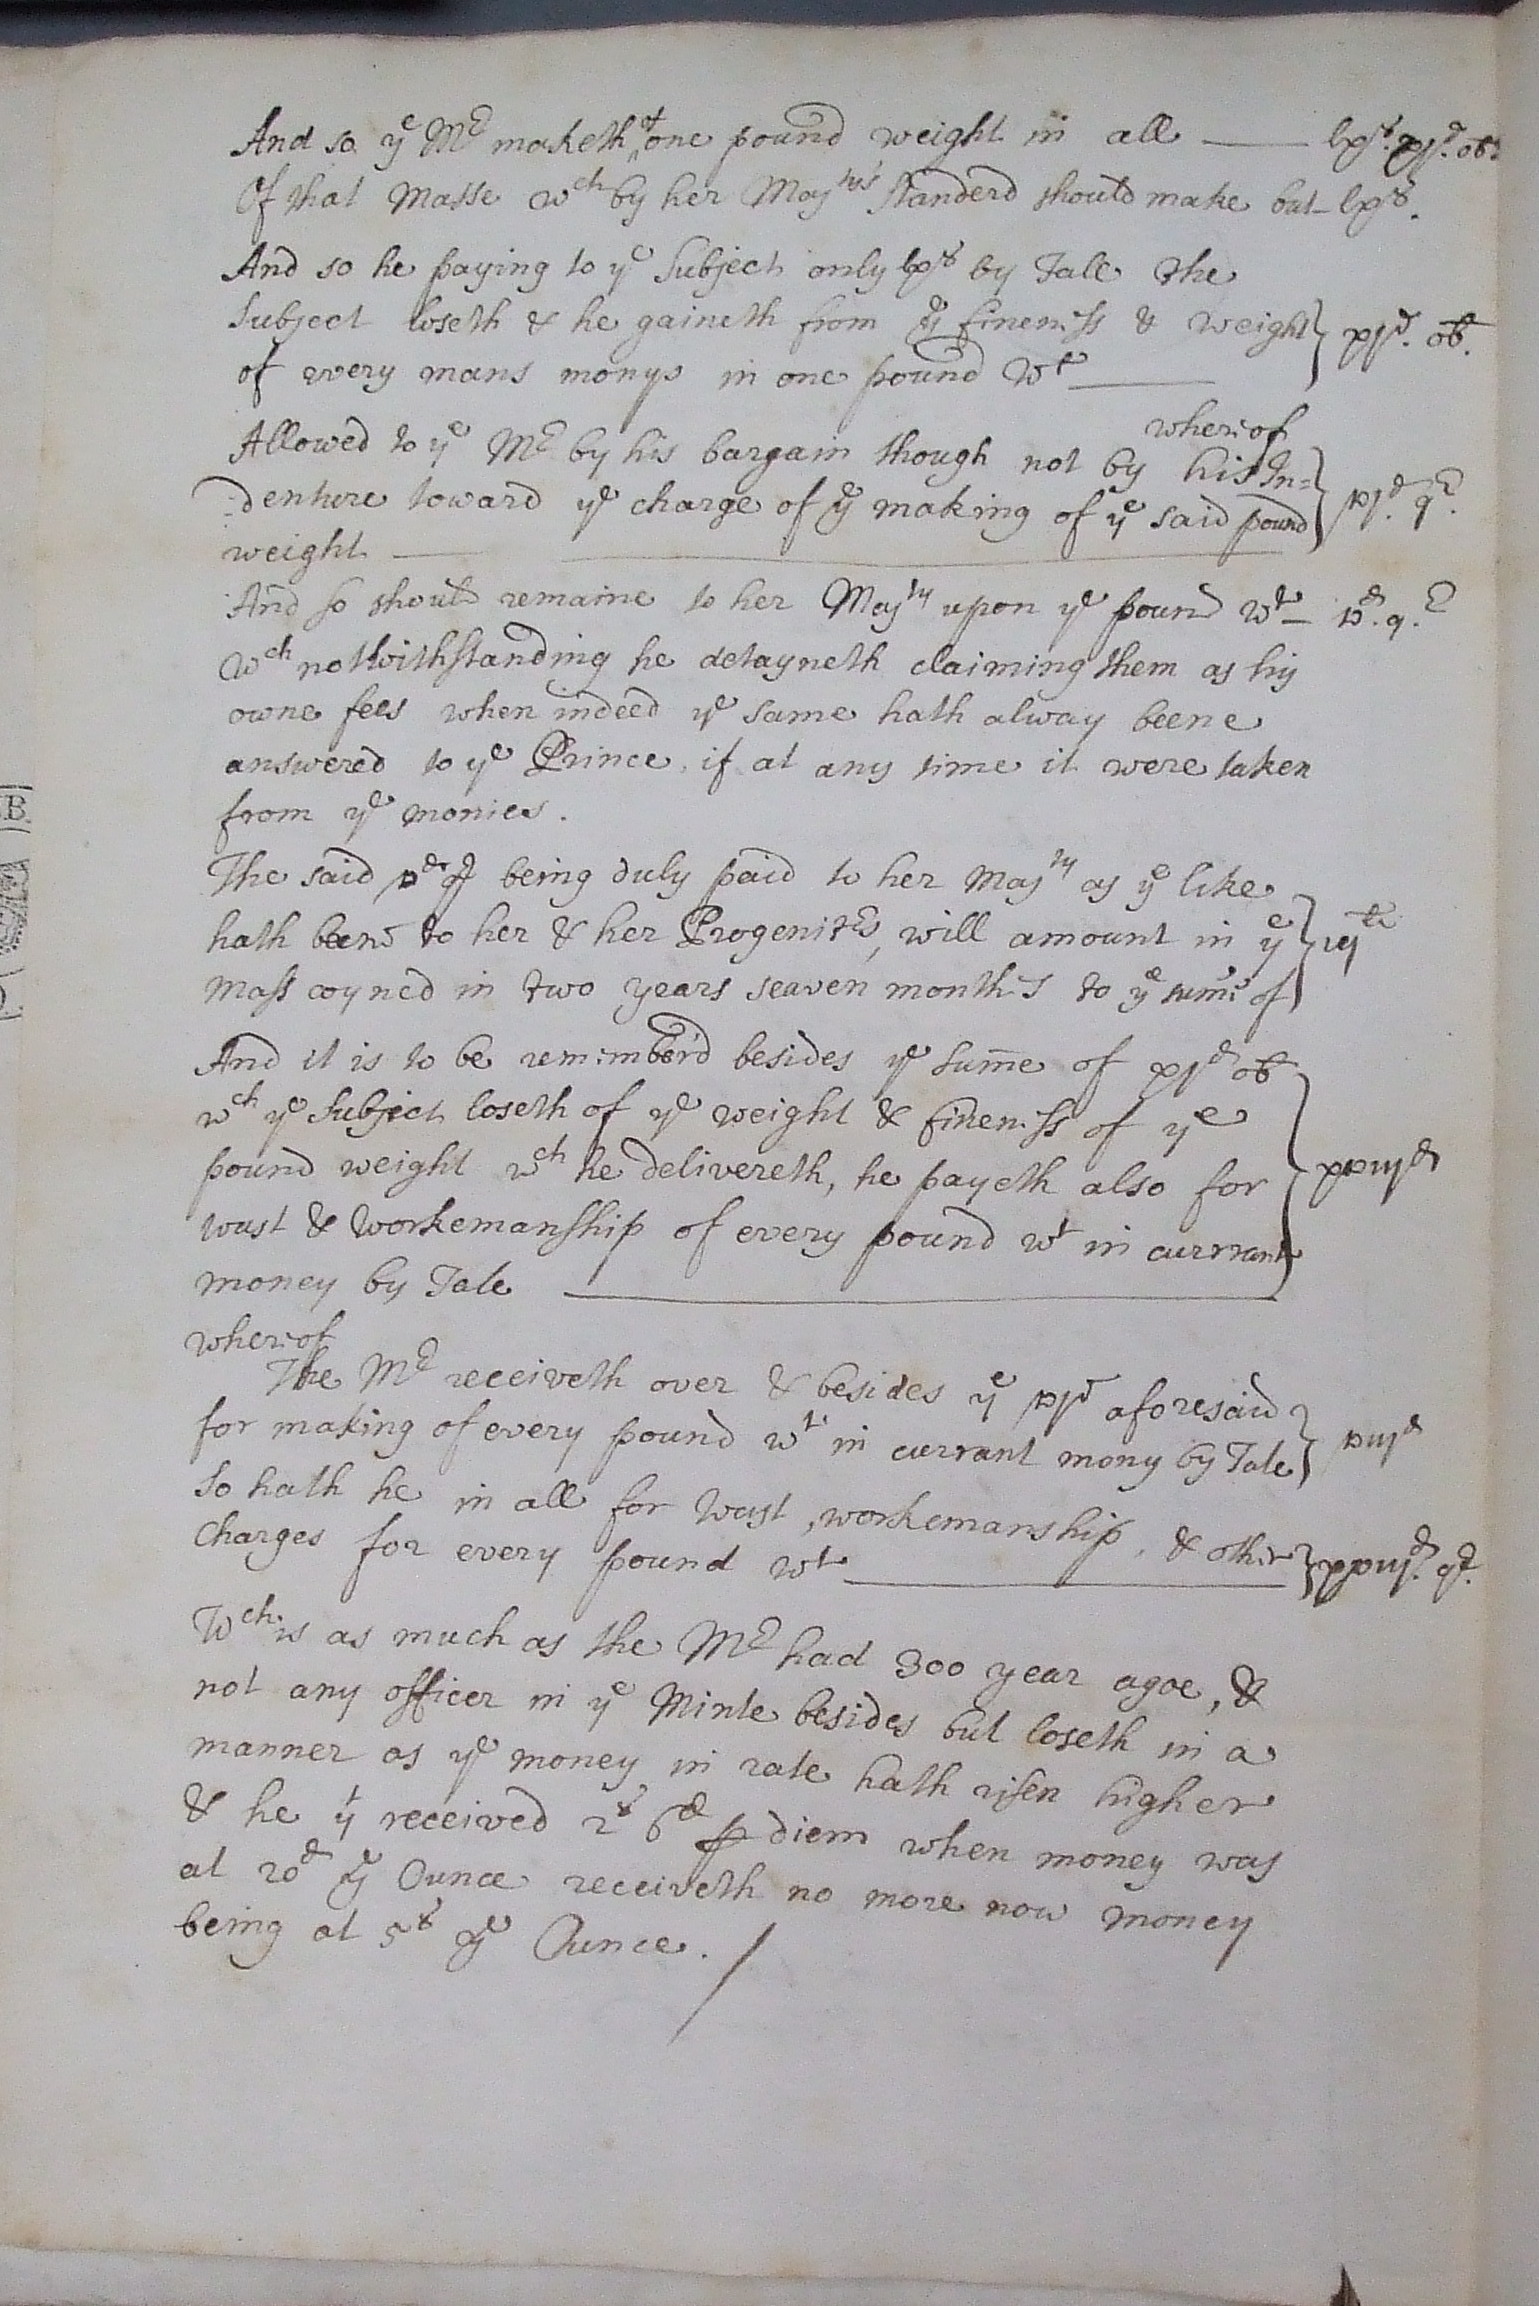 And so yᵉ Mʳ maketh of one pound weight in all —— lxˢ. xjᵈ. ob.
Of that Masse wᶜʰ by her Majᵗⁱᵉˢ standerd should make but – lxˢ.
And so he paying to yᵉ Subject only lxˢ by Tale the
Subject loseth & he gaineth from yᵉ fineness & weight
of every mans monys in one pound Wᵗ —— } xjᵈ. ob.
whereof
Allowed to yᵉ Mʳ by his bargain though not by his In=
=denture toward yᵉ charge of yᵉ making of yᵉ said pound } vjᵈ. qʳ.
weight ——
And so should remaine to her Majᵗʸ upon yᵉ pound wᵗ – vᵈ. qʳ.
Wᶜʰ notwithstanding he detayneth claiming them as his
owne fees when indeed yᵉ same hath alway beene
answered to yᵉ Prince, if at any time it were taken
from yᵉ monies.
The said vᵈ q being duly paid to her Majᵗʸ as yᵉ like
hath been to her & her Progenitʳˢ, will amount in yᵉ
Mass coyned in two years seaven months to yᵉ sume of }
And it is to be remember'd besides yᵉ sum̄e of xjᵈ ob
wᶜʰ yᵉ Subject loseth of yᵉ weight & fineness of yᵉ
pound weight wᶜʰ he delivereth, he payeth also for } xviijᵈ
wast & workemanship of every pound wᵗ in currant
money by Tale ——
whereof
The Mʳ receiveth over & besides yᵉ vjᵈ aforesaid
for making of every pound wᵗ in currant mony by Tale } viijᵈ
So hath he in all for wast, workemanship, & other
Charges for every pound wᵗ —— } qʳ.
Wᶜʰ is as much as the Mʳ had 300 year agoe, &
not any officer in yᵉ Minte besides but loseth in a
manner as yᵉ money in rate hath risen higher
& he yᵗ received 2ˢ 6ᵈ ꝑ diem when money was
at 20ᵈ yᵉ Ounce receiveth no more now money
being at 5ˢ yᵉ Ounce. /